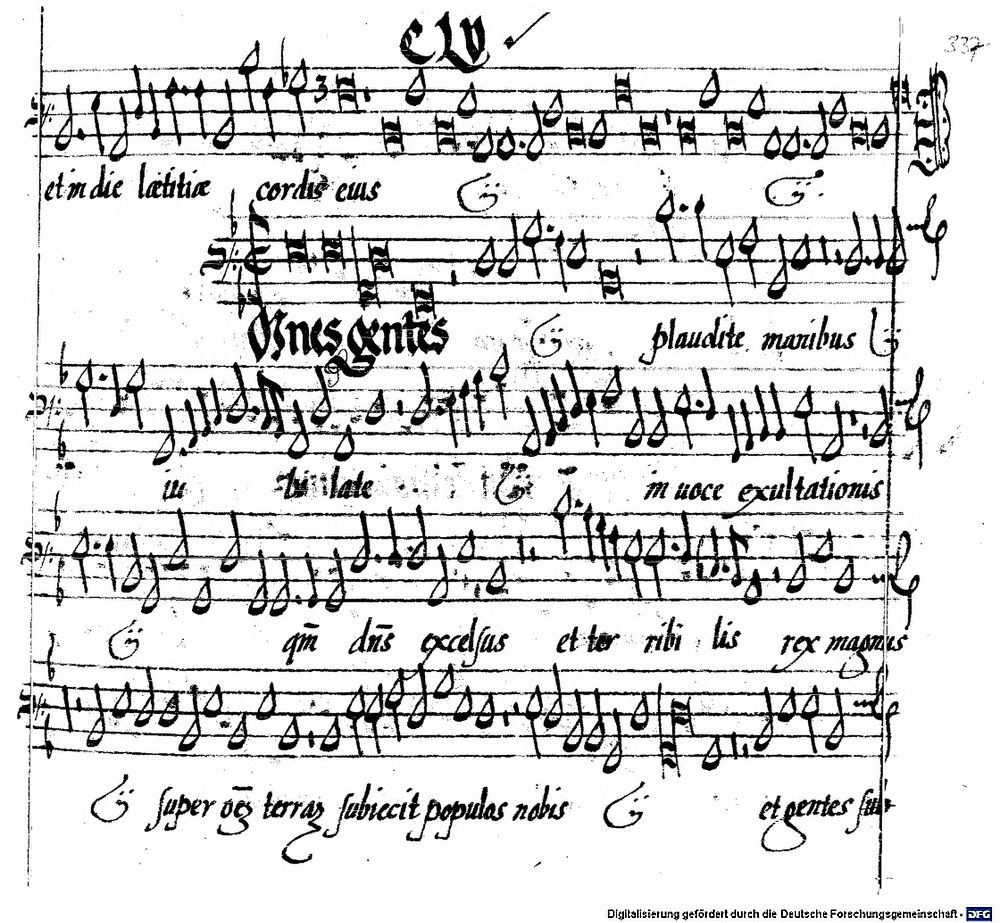 CLV
337
3
et in die lætitiæ cordis eius
Om̄nes gentes plaudite manibus
iu bi late in uoce exultationis
qm̄ dn̄s excelsus et ter ribi lis rex magnus
super oēʒ terraʒ subiecit populos nobis et gentes sub
Digitalisierung gefördert durch die Deutsche Forschungsgemeinschaft - DFG